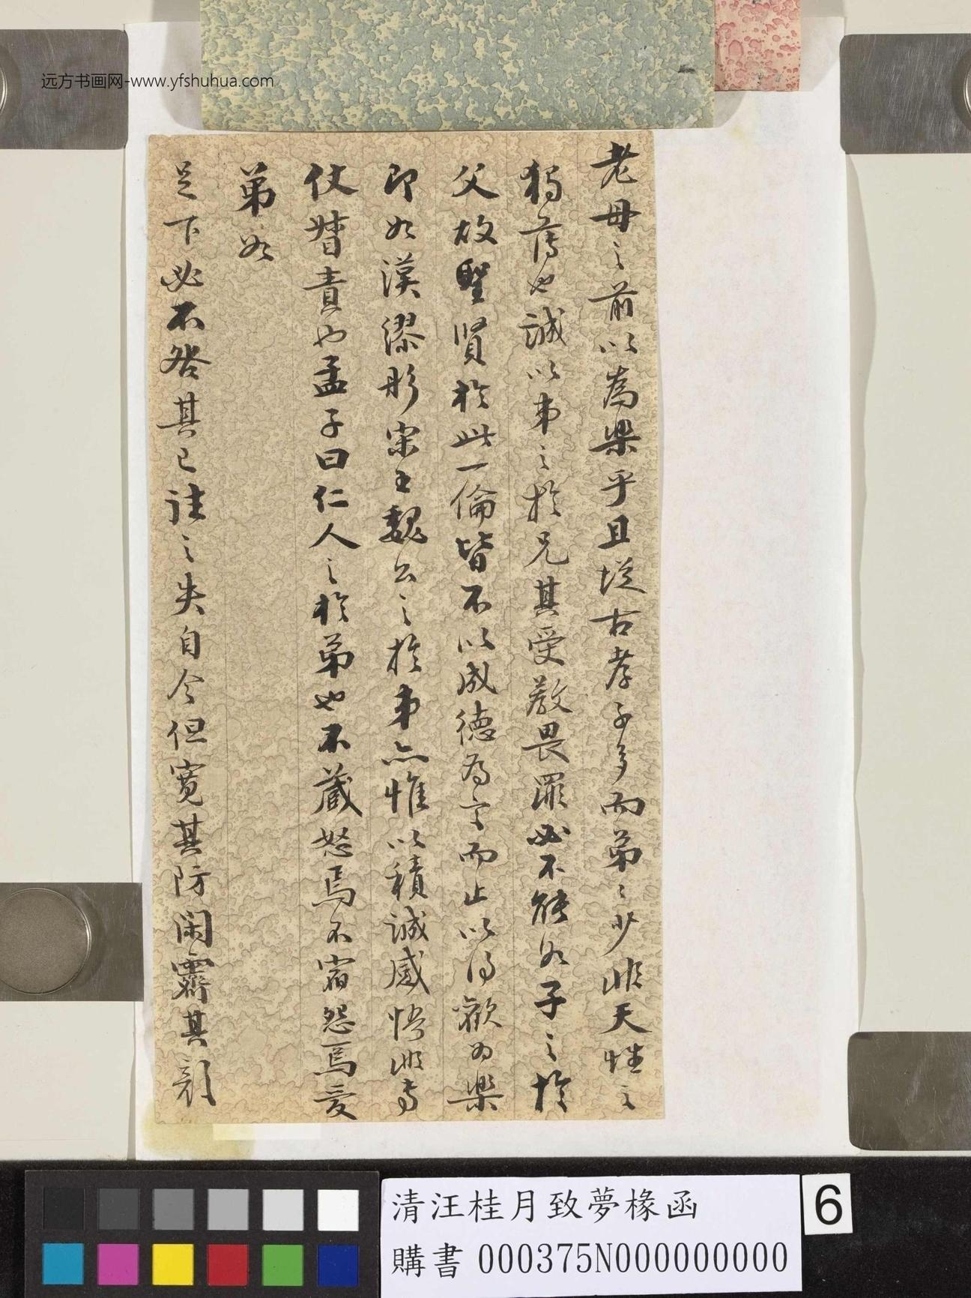 远方书画网-www.yfshuhua.com
老母之前以為樂乎且從古孝子多而弟弟少非天性之
獨薄也誠以弟之於兄其受教畏罪必不能如子之於
父故聖賢於此一倫皆不以成德為言而止以得歡為樂
即如漢繆彤宋王魏公之於弟亦惟以積誠感悟非專
仗督責也孟子曰仁人之於弟也不藏怒焉不宿怨焉愛
弟如
足下必不咎其已往之失自今但寬其防閑霽其顏
清汪桂月致夢椽函
購書 000375N000000000
6